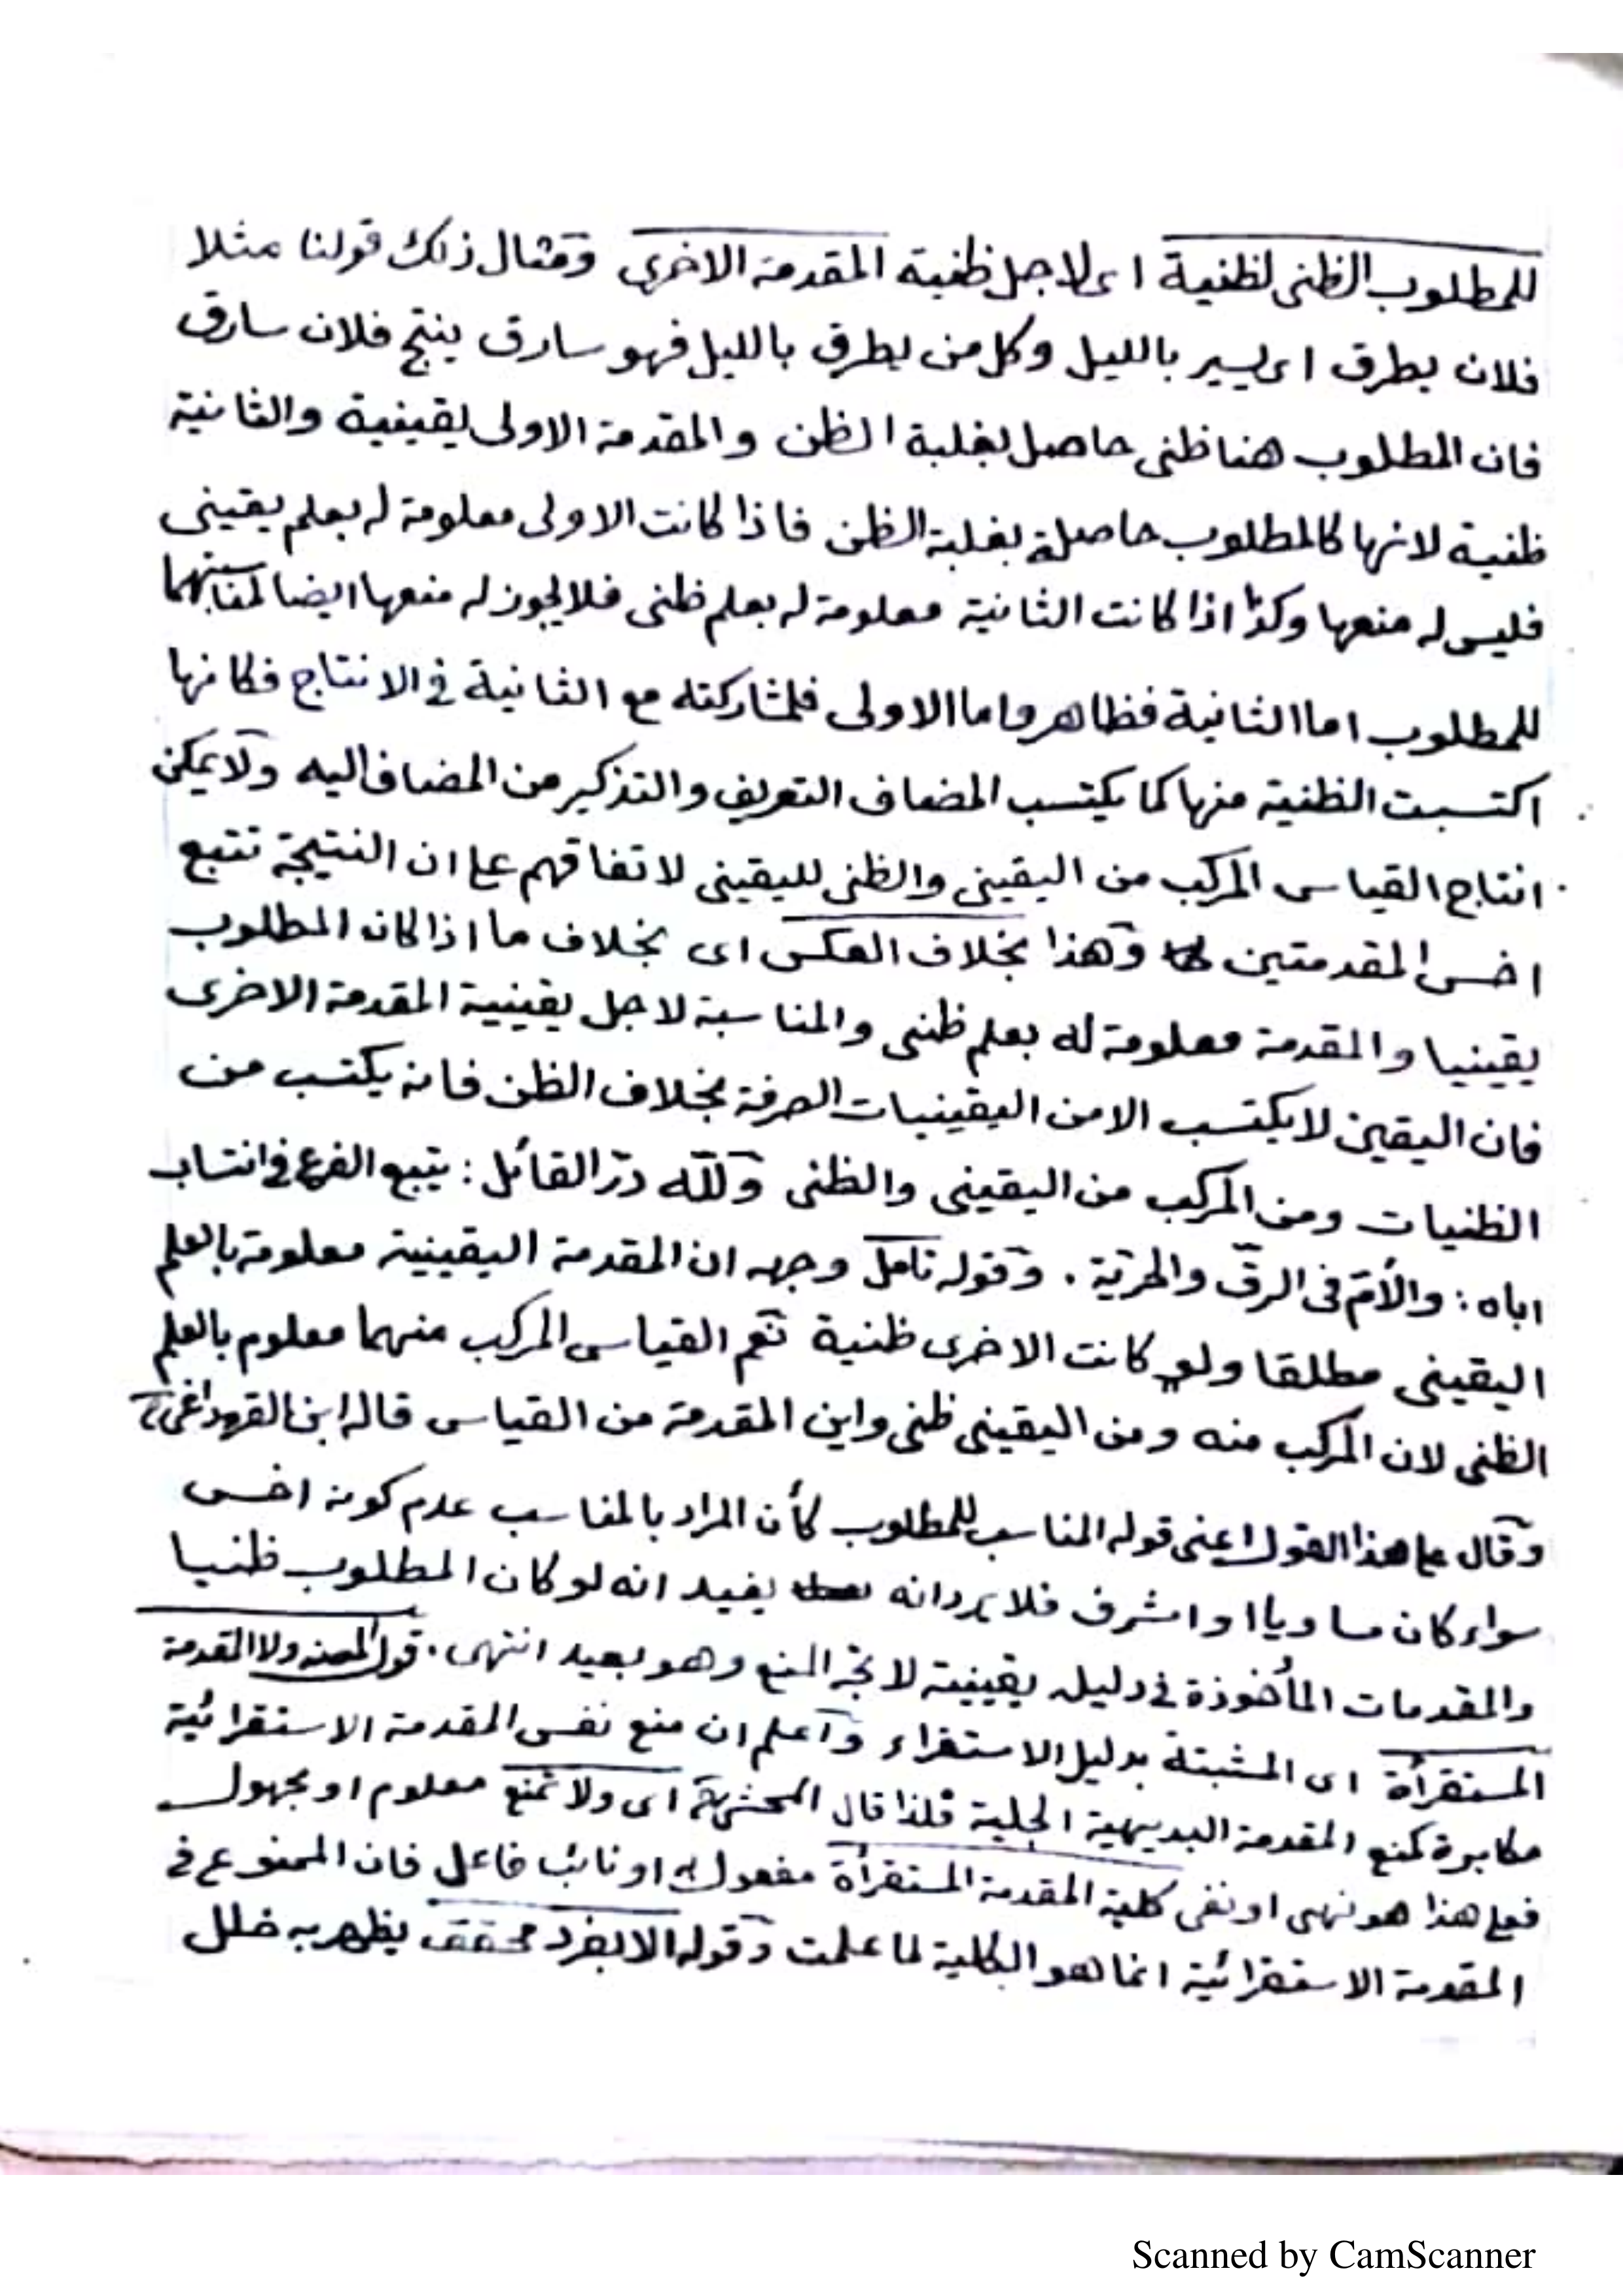 للمطلوب الظنى لظنية اى لاجل ظنية المقدمة الاخرى ومثال ذلك قولنا مثلا
فلان يطرق اى يسير بالليل وكل من يطرق بالليل فهو سارق ينتج فلان سارق
فان المطلوب هنا ظنى حاصل بغلبة الظن والمقدمة الاولى يقينية والثانية
ظنية لانها كالمطلوب حاصلة بغلبة الظن فاذا كانت الاولى معلومة له بعلم يقينى
فليس له منعها وكذا اذا كانت الثانية معلومة له بعلم ظنى فلا يجوز له منعها ايضا لمناسبتهما
للمطلوب اما الثانية فظاهر واما الاولى فلمشاركته مع الثانية فى الانتاج فكانها
اكتسبت الظنية منها كما يكتسب المضاف التعريف والتذكير من المضاف اليه ولا يمكن
انتاج القياس المركب من اليقينى والظنى لليقينى لاتفاقهم على ان النتيجة تتبع
اخس المقدمتين وهذا بخلاف العكس اى بخلاف ما اذا كان المطلوب
يقينيا والمقدمة معلومة له بعلم ظنى والمناسبة لاجل يقينية المقدمة الاخرى
فان اليقين لا يكتسب الا من اليقينيات الصرفة بخلاف الظن فانه يكتسب من
الظنيات ومن المركب من اليقينى والظنى ولله درّ القائل : يتبع الفرع فى انتساب
اباه : والأمّ فى الرقّ والحرّية . وقوله تامل وجهه ان المقدمة اليقينية معلومة بالعلم
اليقينى مطلقا ولو كانت الاخرى ظنية نعم القياس المركب منهما معلوم بالعلم
الظنى لان المركب منه ومن اليقينى ظنى واين المقدمة من القياس قاله ابن القرهداغى
وقال على هذا القول اعنى قوله المناسب للمطلوب كأن المراد بالمناسب عدم كونه اخس
سواء كان مساويا او اشرف فلا يرد انه يفيد انه لو كان المطلوب ظنيا
والمقدمات المأخوذة فى دليله يقينية لاتجه المنع وهو بعيد انتهى . قول المصنف ولا المقدمة
المستقرأة اى المثبتة بدليل الاستقراء واعلم ان منع نفس المقدمة الاستقرائية
مكابرة كمنع المقدمة البديهية الجلية فلذا قال المحشى اى ولا تمنع معلوم او مجهول
فعلى هذا هو نهى او نفى كلية المقدمة المستقرأة مفعول به او نائب فاعل فان الممنوع فى
المقدمة الاستقرائية انما هو الكلية لما علمت وقوله الا بفرد محقق يظهر به خلل
Scanned by CamScanner